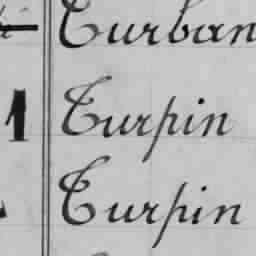 Turban
1 Turpin
Turpin